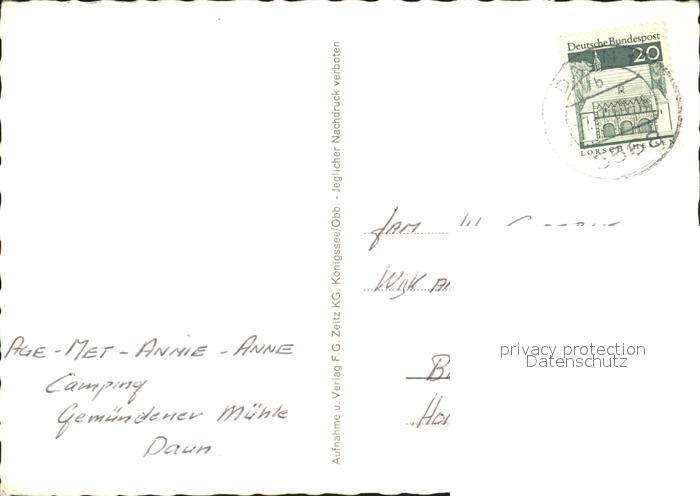 Deutsche Bundespost
20
LORSCH/HESSEN
Aufnahme u. Verlag F. G. Zeitz KG, Königssee/Obb. - Jeglicher Nachdruck verboten
FAM
Wijk
AGE - MET - ANNIE - ANNE
Camping
Gemündener Mühle
Daun
privacy protection
Datenschutz